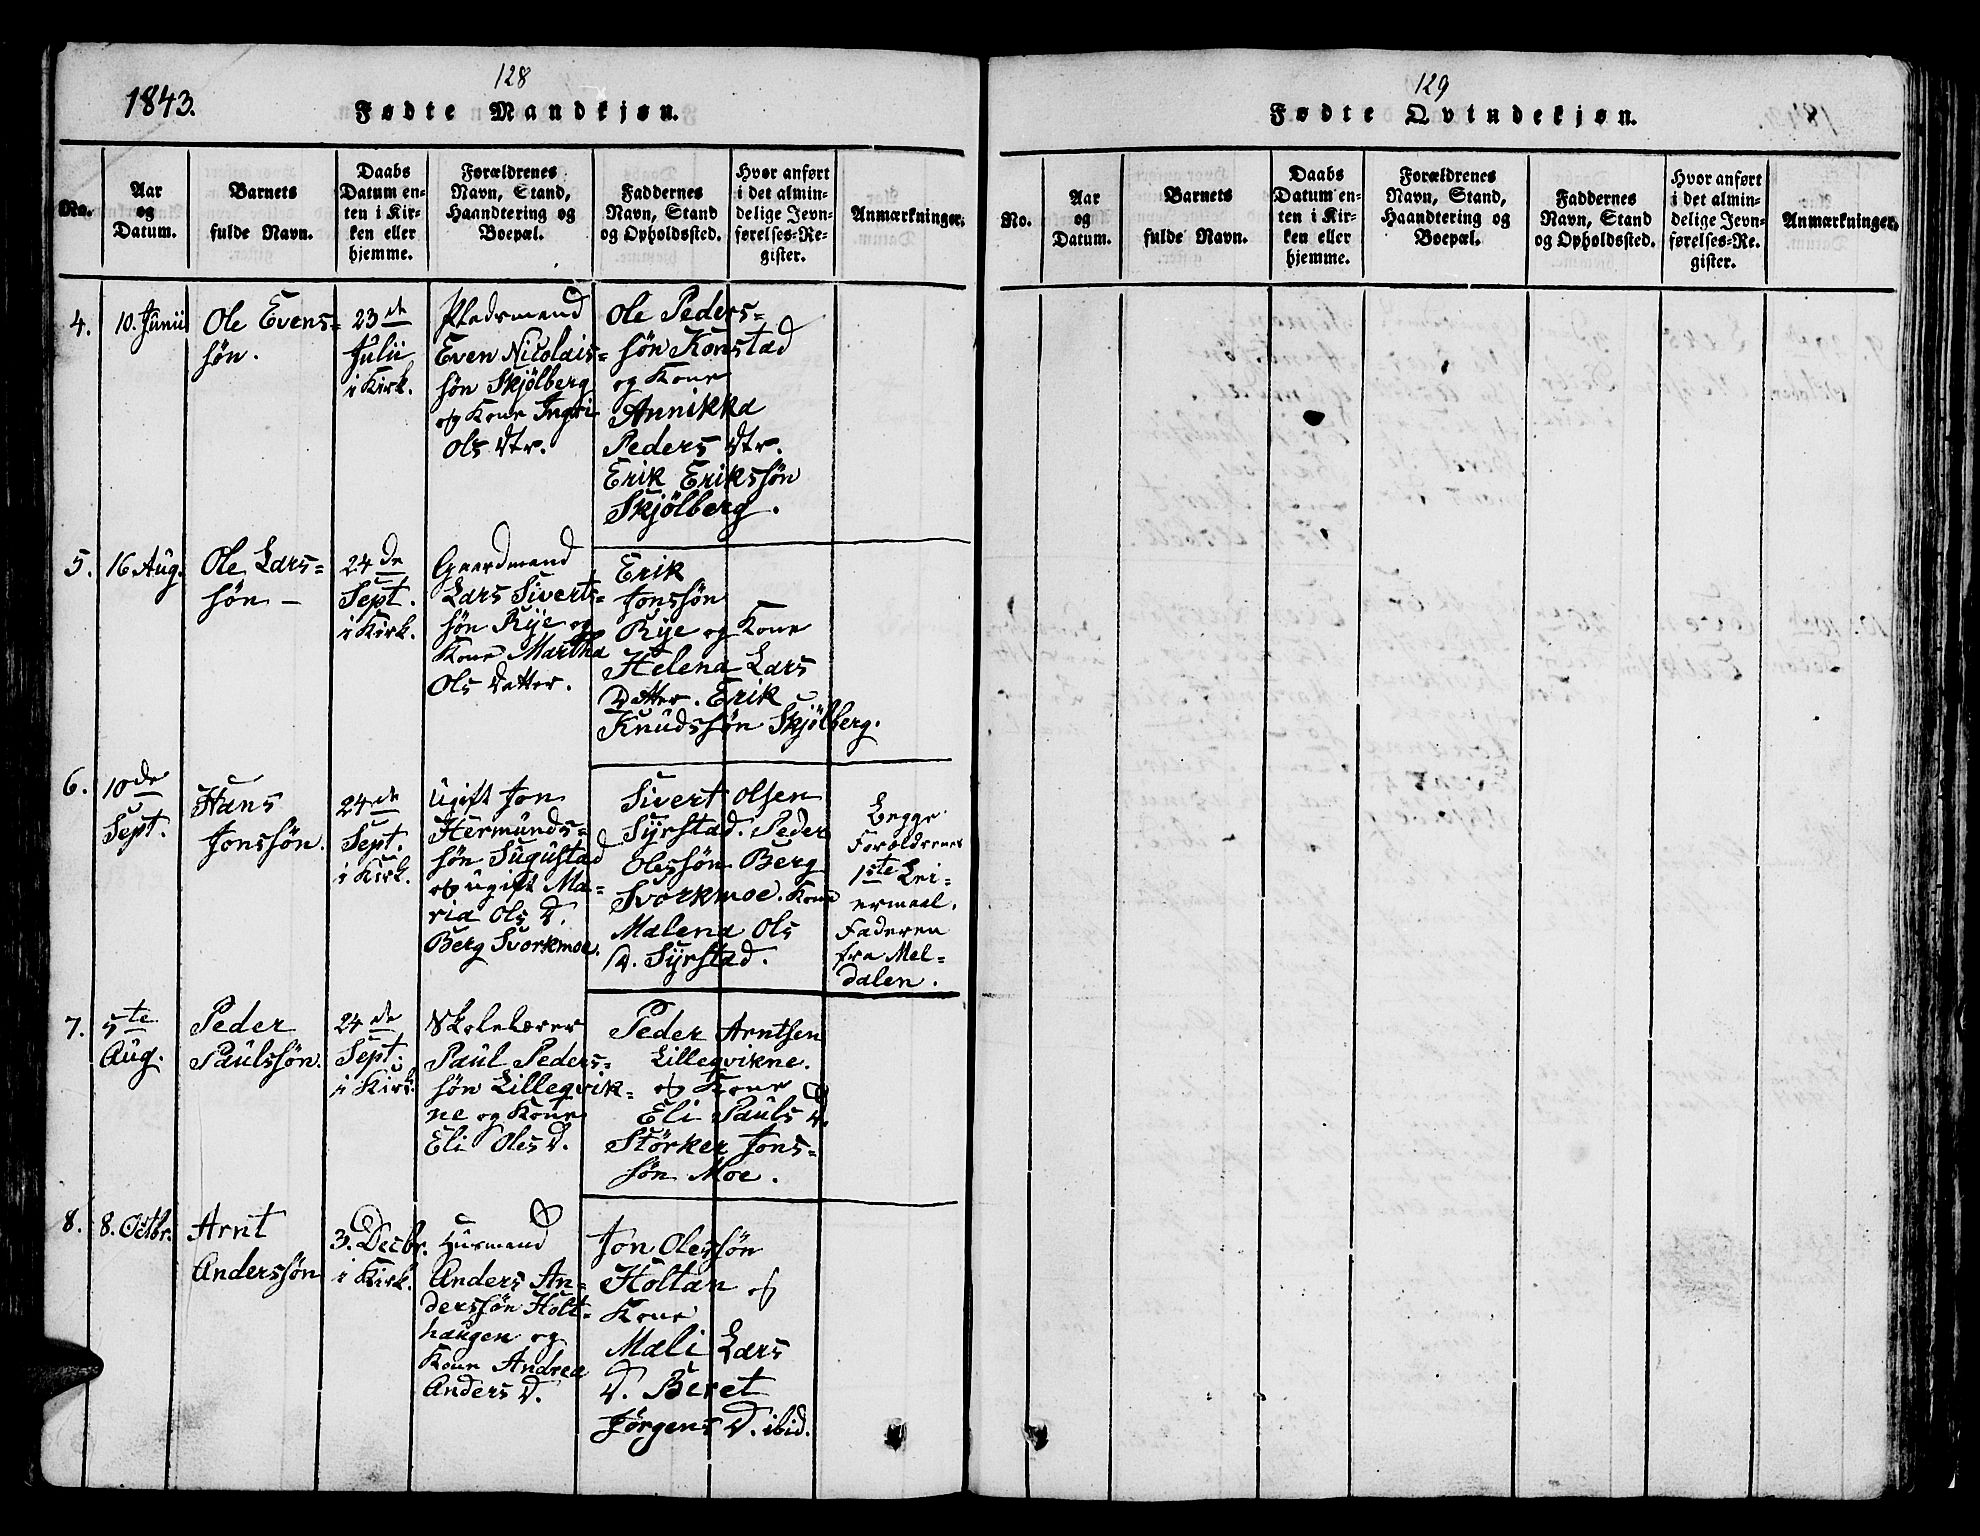 1843.
128
Fødte Mandkjøn.
No.
Aar
og
Datum.
Barnets
fulde Navn.
Daabs
Datum en-
ten i Kir-
ken eller
hjemme.
Forældrenes
Navn, Stand,
Haandtering og
Boepæl.
Faddernes
Navn, Stand
og Opholdssted.
Hvor anført
i det almin-
delige Jevn-
førelses-Re-
gister.
Anmærkninger.
4.
10. Junii
Ole Evens=
søn.
23de
Julii
i Kirk.
Pladsmand
Even Nicolais=
søn Skjölberg
og Kone Ingri
Ols Dtr.
Ole Peders=
søn Konstad
og Kone
Annikka
Peders Dtr.
Erik Erikssøn
Skjölberg.
5.
16 Aug.
Ole Lars=
søn –
24de
Sept.
i Kirk.
Gaardmand
Lars Siverts=
søn Rye og
Kone Martha
Ols Datter.
Erik
Jonssøn
Rye og Kone
Helena Lars
Datter. Erik
Knudssøn Skjölberg.
6.
10de
Sept.
Hans
Jonssøn.
24de
Sept.
i Kirk.
Ugift Jon
Hermunds=
søn Sugustad
og ugift Ma=
ria Ols D.
Berg Svorkmoe.
Sivert Olsen
Syrstad. Peder
Olessøn Berg
Svorkmoe. Kone
Malena Ols
D. Syrstad.
Begge
Foroldrenes
1ste Lei-
ermaal.
Faderen
fra Mel-
dalen.
7.
5te
Aug.
Peder
Paulssøn.
24de
Sept.
i Kirk.
Skolelærer
Paul Peders=
søn Lillegvik=
ne og Kone
Eli Oles D.
Peder Arntsen
Lillegvikne.
og Kone
Eli Pauls D.
Störker Jons=
søn Moe.
8.
8. Octbr.
Arnt
Anderssøn
3. Decbr.
i Kirk.
Husmand
Anders An=
derssøn Holt=
haugen og
Kone Andrea
Anders D.
Jon Olessøn
Holtan og
Kone
Mali Lars
D. Beret
Jørgens D. ibid.
129
Fødte Qvindekjøn.
No.
Aar
og
Datum.
Barnets
fulde Navn.
Daabs
Datum en-
ten i Kir-
ken eller
hjemme.
Forældrenes
Navn, Stand,
Haandtering og
Boepæl.
Faddernes
Navn, Stand
og Opholdssted.
Hvor anført
i det almin-
delige Jevn-
førelses-Re-
gister.
Anmærkninger.